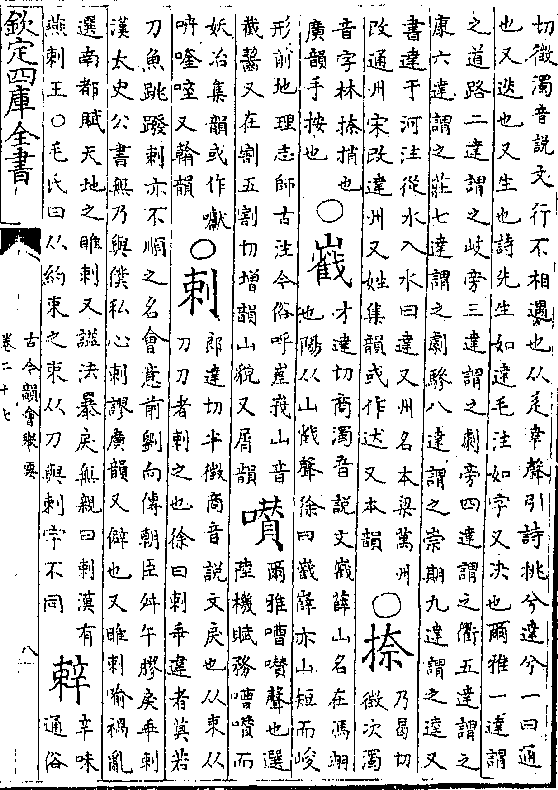 切徴濁音說文行不相遇也从辵羍聲引詩挑兮達兮一曰通
也又迭也又生也詩先生如達毛注如字又决也爾雅一達謂
之道路二達謂之岐旁三達謂之劇旁四達謂之衢五達謂之
康六達謂之莊七達謂之劇驂八達謂之崇期九達謂之逵又
書達于河注從水入水曰達又州名本梁萬州
改通州宋改達州又姓集韻或作迖又本韻○捺乃曷切徴次濁
音字林捺捎也
廣韻手按也○巀才達切商濁音說文巀嶭山名在馮翊
也陽从山𢧵聲徐曰巀嶭亦山短而峻
形前地理志師古注今俗呼嵳峩山音
截齧又在割五割切增韻山貌又屑韻囋爾雅嘈囋聲也選
陸機賦務嘈囋而
妖冶集韻或作囐
㖕㗚啐又翰韻○剌郎達切半徴商音說文戾也从束从
刀刀者剌之也徐曰剌乖違者莫若
刀魚跳蹳剌亦不順之名會意前劉向傳朝臣舛午膠戾乖剌
漢太史公書無乃與僕私心剌謬廣韻又僻也又睢剌喻禍亂
選南都賦天地之睢剌又諡法暴戾無親曰剌漢有
燕剌王○毛氏曰从約束之束从刀與刺字不同𢴨辛味
通俗
欽定四庫全書
古今韻會舉要
卷二十七
八